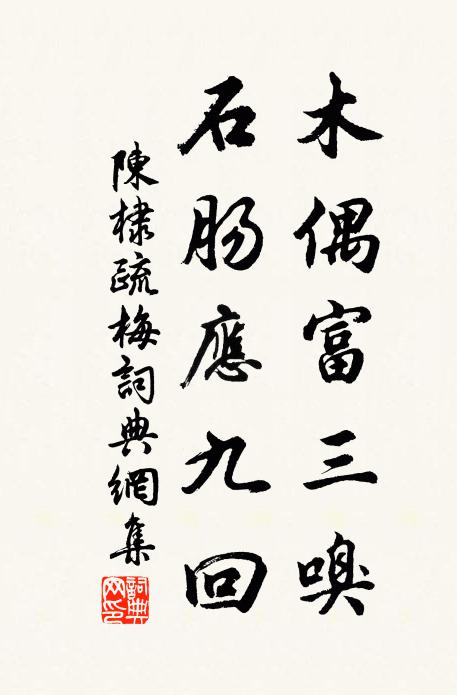 木偶富三嗅
石肠應九回
陳棣疏梅詞典網集
詞典網印